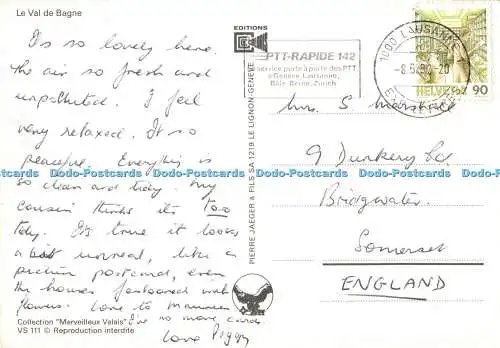 Le Val de Bagne
It's so lovely here.
the air so fresh and
unpolluted. I feel
very relaxed. It so
peaceful. Everything is
so clean and tidy. My
cousin thinks its Too
tidy. It's true it looks
a bit unreal, like a
picture postcard, even
the houses festooned with
flowers. Love to Maureen
I've no more cards
Love Peggy
Collection "Merveilleux Valais"
VS 111 © Reproduction interdite
EDITIONS
PIERRE JAEGER & FILS SA 1219 LE LIGNON-GENEVE
PTT-RAPIDE 142
service porte à porte des PTT
à Genève, Lausanne,
Bâle, Berne, Zurich
1000 LAUSANNE
HELVETIA 90
Mrs. S
9 Dunkery Rd
Bridgwater
Somerset
ENGLAND
Dodo-Postcards Dodo-Postcards Dodo-Postcards Dodo-Postcards Dodo-Postcards Dodo-Postcards